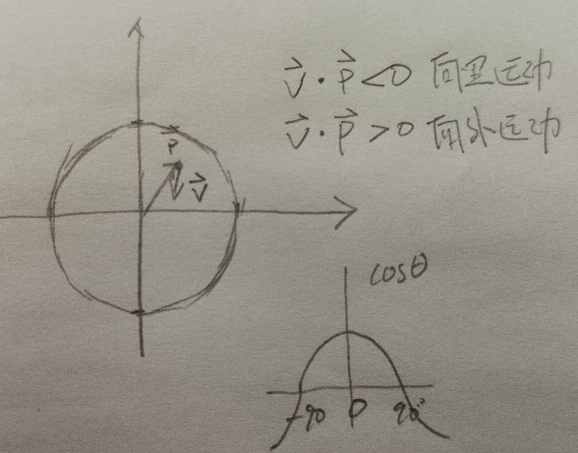 v⃗·p⃗<0 向里运动
v⃗·p⃗>0 向外运动
p⃗
v⃗
cosθ
-90 0 90°